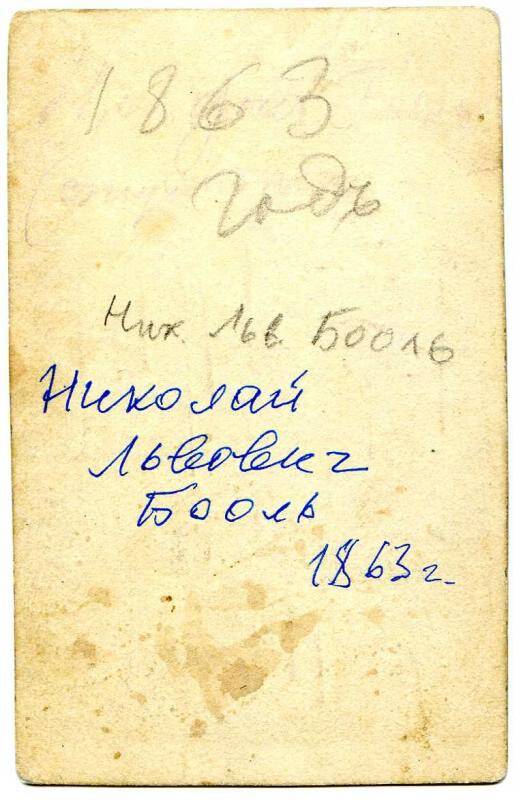 1863
годъ
Ник. Льв. Бооль
Николай
Львович
Бооль
1863 г.